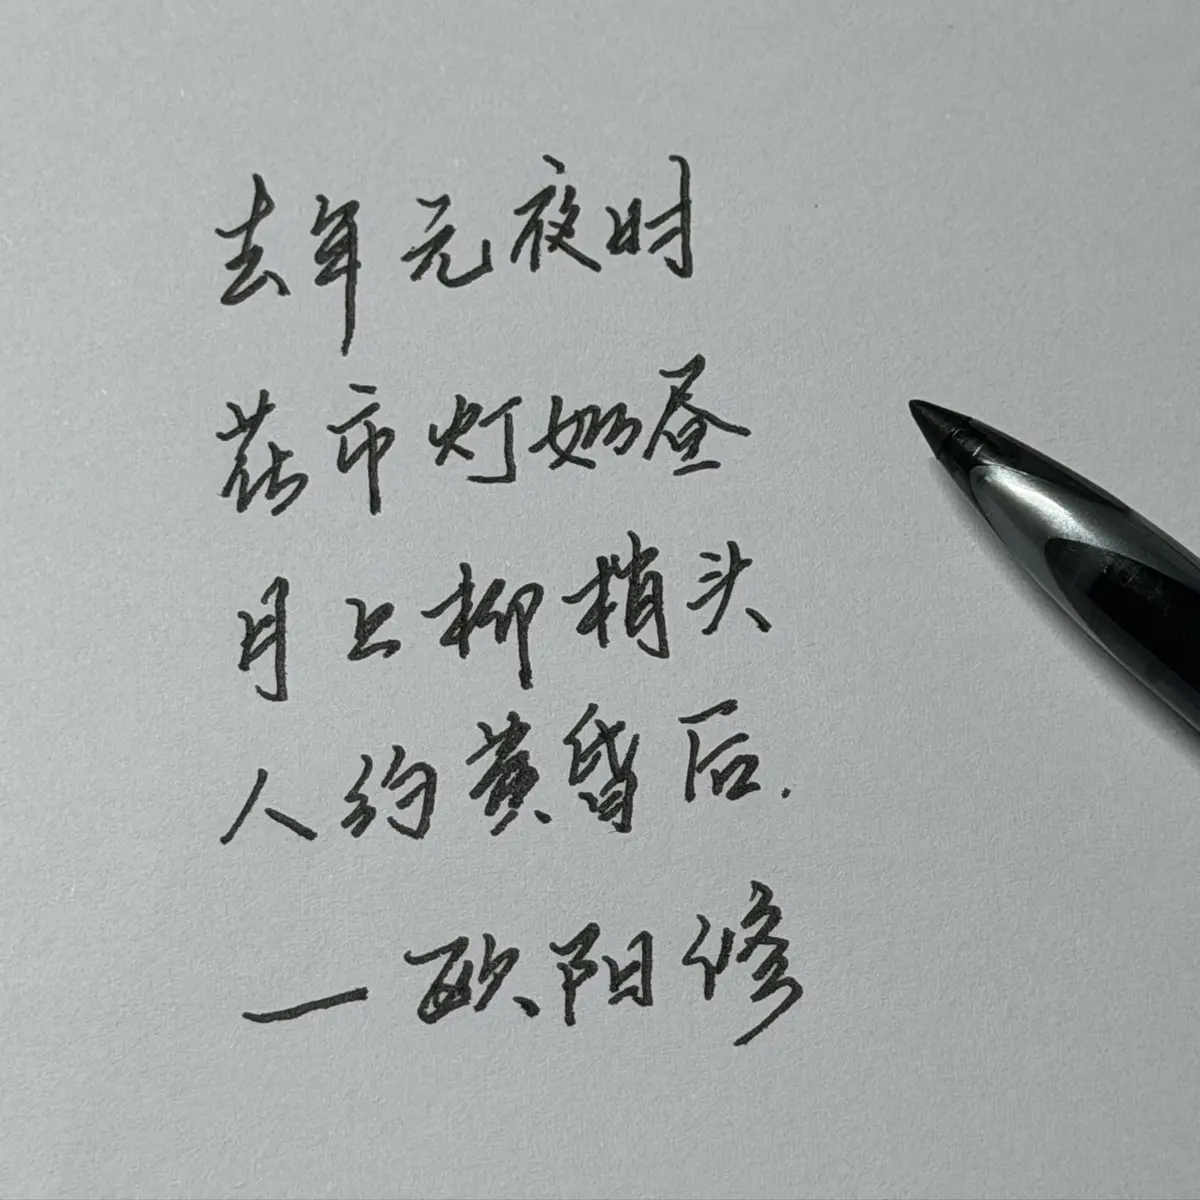 去年元夜时
花市灯如昼
月上柳梢头
人约黄昏后.
—欧阳修